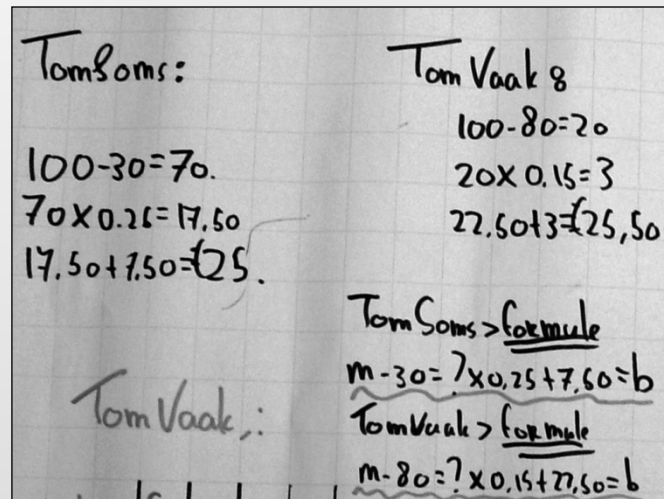 TomSoms:
100-30=70.
70x0.25=17,50
17.50+7.50=€25.
TomVaak,:
Tom Vaak :
100-80=20
20x0.15=3
22.50+3=€25,50
Tom Soms>formule
m-30=?x0,25+7,50=b
TomVaak>formule
m-80=?x0,15+22,50=b